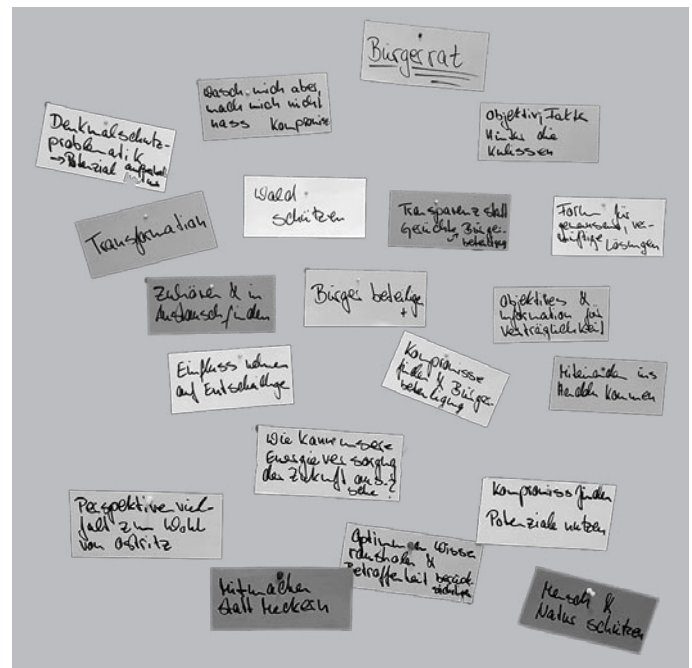 Bürgerrat
Wasch mich aber,
mach mich nicht
nass Kompromiss
Denkmalschutz-
problematik
→ Potenzial
objektiv, Fakten
Hinter die
Kulissen
Transformation
Wald
schützen
Transparenz statt
Gerüchte Bürger-
beteiligung
Form für
gemeinsame, ver-
nünftige Lösungen
Zuhören & in
Austausch finden
Bürger beteiligen
+
objektives &
Information für
Verträglichkeit
Einfluss nehmen
auf Entscheidunge
Kompromisse
finden & Bürger-
beteiligung
Miteinander ins
Handeln kommen
Wie kann unsere
Energieversorgung
der Zukunft aus-?
sehe
Perspektivenviel-
falt zum Wohl
von Ostritz
Kompromiss finden
Potenziale nutzen
Optimum an Wissen
rausholen &
Betroffenheit berück
sichtigen
Mitmachen
statt Meckern
Mensch &
Natur schützen